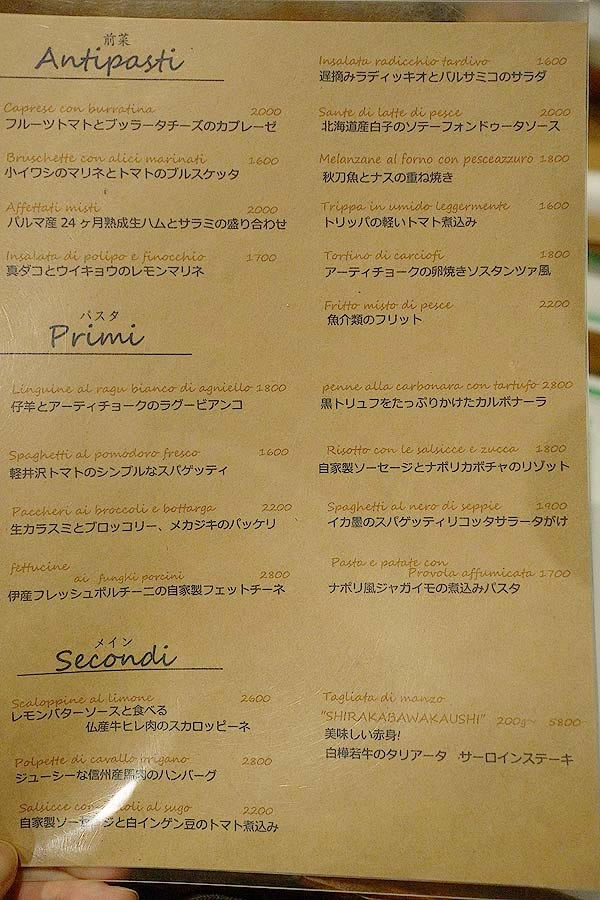 前菜
Antipasti
Caprese con burratina 2000
フルーツトマトとブッラータチーズのカプレーゼ
Bruschette con alici marinati 1600
小イワシのマリネとトマトのブルスケッタ
Affettati misti 2000
パルマ産24ヶ月熟成生ハムとサラミの盛り合わせ
Insalata di polipo e finocchio 1700
真ダコとウイキョウのレモンマリネ
Insalata radicchio tardivo 1600
遅摘みラディッキオとバルサミコのサラダ
Sante di latte di pesce 2000
北海道産白子のソテーフォンドゥータソース
Melanzane al forno con pesceazzuro 1800
秋刀魚とナスの重ね焼き
Trippa in umido leggermente 1600
トリッパの軽いトマト煮込み
Tortino di carciofi 1800
アーティチョークの卵焼きソスタンツァ風
Fritto misto di pesce 2200
魚介類のフリット
パスタ
Primi
Linguine al ragu bianco di agniello 1800
仔羊とアーティチョークのラグービアンコ
Spaghetti al pomodoro fresco 1600
軽井沢トマトのシンプルなスパゲッティ
Paccheri ai broccoli e bottarga 2200
生カラスミとブロッコリー、メカジキのパッケリ
fettucine
ai fungki porcini 2800
伊産フレッシュポルチーニの自家製フェットチーネ
penne alla carbonara con tartufo 2800
黒トリュフをたっぷりかけたカルボナーラ
Risotto con le salsicce e zucca 1800
自家製ソーセージとナポリカボチャのリゾット
Spaghetti al nero di seppie 1900
イカ墨のスパゲッティリコッタサラータがけ
Pasta e patate con
Provola affumicata 1700
ナポリ風ジャガイモの煮込みパスタ
メイン
Secondi
Scaloppine al limone 2600
レモンバターソースと食べる
仏産牛ヒレ肉のスカロッピーネ
Polpette di cavallo origano 2800
ジューシーな信州産馬肉のハンバーグ
Salsicce con al sugo 2200
自家製ソーセージと白インゲン豆のトマト煮込み
Tagliata di manzo
"SHIRAKABAWAKAUSHI" 200g~ 5800
美味しい赤身!
白樺若牛のタリアータ サーロインステーキ